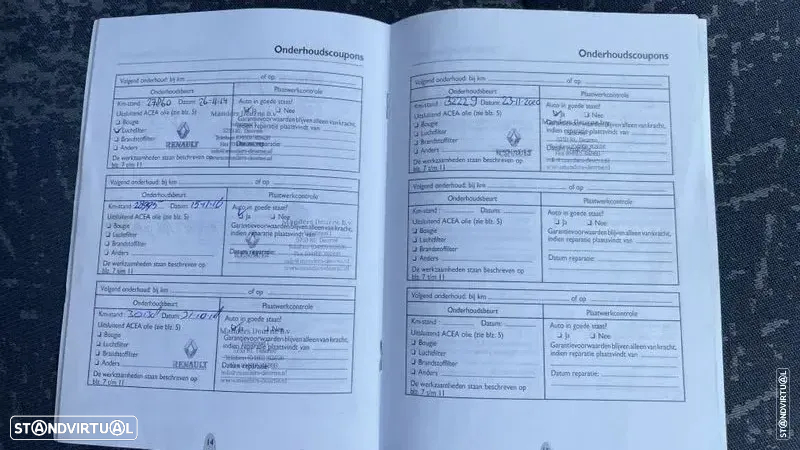 Onderhoudscoupons
Volgend onderhoud: bij km of op
Onderhoudsbeurt Plaatwerkcontrole
Km-stand: 27860 Datum: 26-11-14 Auto in goede staat?
Uitsluitend ACEA olie (zie blz. 5) Ja Nee
Bougie Garantievoorwaarden blijven alleen van kracht,
Luchtfilter indien reparatie plaatsvindt van
Brandstoffilter
Anders RENAULT
De werkzaamheden staan beschreven op
blz. 7 t/m 11
Volgend onderhoud: bij km of op
Onderhoudsbeurt Plaatwerkcontrole
Km-stand: Datum: Auto in goede staat?
Uitsluitend ACEA olie (zie blz. 5) Ja Nee
Bougie Garantievoorwaarden blijven alleen van kracht,
Luchtfilter indien reparatie plaatsvindt van
Brandstoffilter
Anders Datum reparatie:
De werkzaamheden staan beschreven op
blz. 7 t/m 11
Volgend onderhoud: bij km of op
Onderhoudsbeurt Plaatwerkcontrole
Km-stand: Datum: Auto in goede staat?
Uitsluitend ACEA olie (zie blz. 5)
Bougie Garantievoorwaarden blijven alleen van kracht,
Luchtfilter indien reparatie plaatsvindt van
Brandstoffilter
Anders RENAULT Datum reparatie:
De werkzaamheden staan beschreven op
blz. 7 t/m 11
14
Onderhoudscoupons
Volgend onderhoud: bij km of op
Onderhoudsbeurt Plaatwerkcontrole
Km-stand: Datum: 23-11-2020 Auto in goede staat?
Uitsluitend ACEA olie (zie blz. 5) Ja Nee
Bougie Garantievoorwaarden blijven alleen van kracht,
Luchtfilter indien reparatie plaatsvindt van
Brandstoffilter
Anders RENAULT
De werkzaamheden staan beschreven op
blz. 7 t/m 11
Volgend onderhoud: bij km of op
Onderhoudsbeurt Plaatwerkcontrole
Km-stand: Datum: Auto in goede staat?
Uitsluitend ACEA olie (zie blz. 5) Ja Nee
Bougie Garantievoorwaarden blijven alleen van kracht,
Luchtfilter indien reparatie plaatsvindt van
Brandstoffilter
Anders Datum reparatie:
De werkzaamheden staan beschreven op
blz. 7 t/m 11
Volgend onderhoud: bij km of op
Onderhoudsbeurt Plaatwerkcontrole
Km-stand: Datum: Auto in goede staat?
Uitsluitend ACEA olie (zie blz. 5) Ja Nee
Bougie Garantievoorwaarden blijven alleen van kracht,
Luchtfilter indien reparatie plaatsvindt van
Brandstoffilter
Anders Datum reparatie:
De werkzaamheden staan beschreven op
blz. 7 t/m 11
STANDVIRTUAL
STANDVIRTUAL